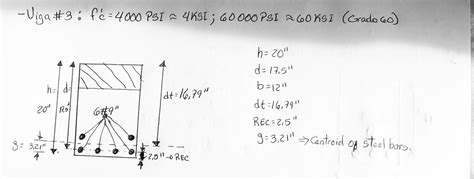 -Viga #3: f'c = 4000 PSI ≈ 4KSI ; 60 000 PSI ≈ 60 KSI (Grado 60)
h = 20"
d = 17.5"
b = 12"
dt = 16,79"
REC = 2.5"
g = 3.21" ⇒ Centroid of steel bars.
h= d=
20"
6#9"
dt = 16,79"
g = 3.21"
2,5" → REC